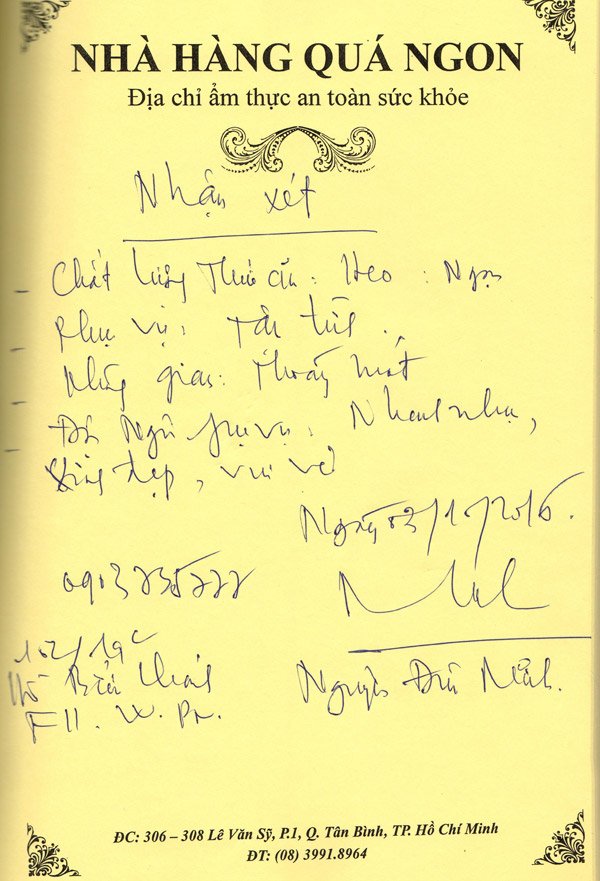 NHÀ HÀNG QUÁ NGON
Địa chỉ ẩm thực an toàn sức khỏe
Nhận xét
Chất lượng Thức ăn: Heo: Ngon
Phục vụ: Tận tình.
Không gian: Thoáng mát
Đội Ngũ phục vụ: Nhanh nhẹ,
đẹp, vui vẻ
Ngày 03/10/2016.
0903735777
102/19C
F11.
Nguyễn Đức Minh.
ĐC: 306 – 308 Lê Văn Sỹ, P.1, Q. Tân Bình, TP. Hồ Chí Minh
ĐT: (08) 3991.8964